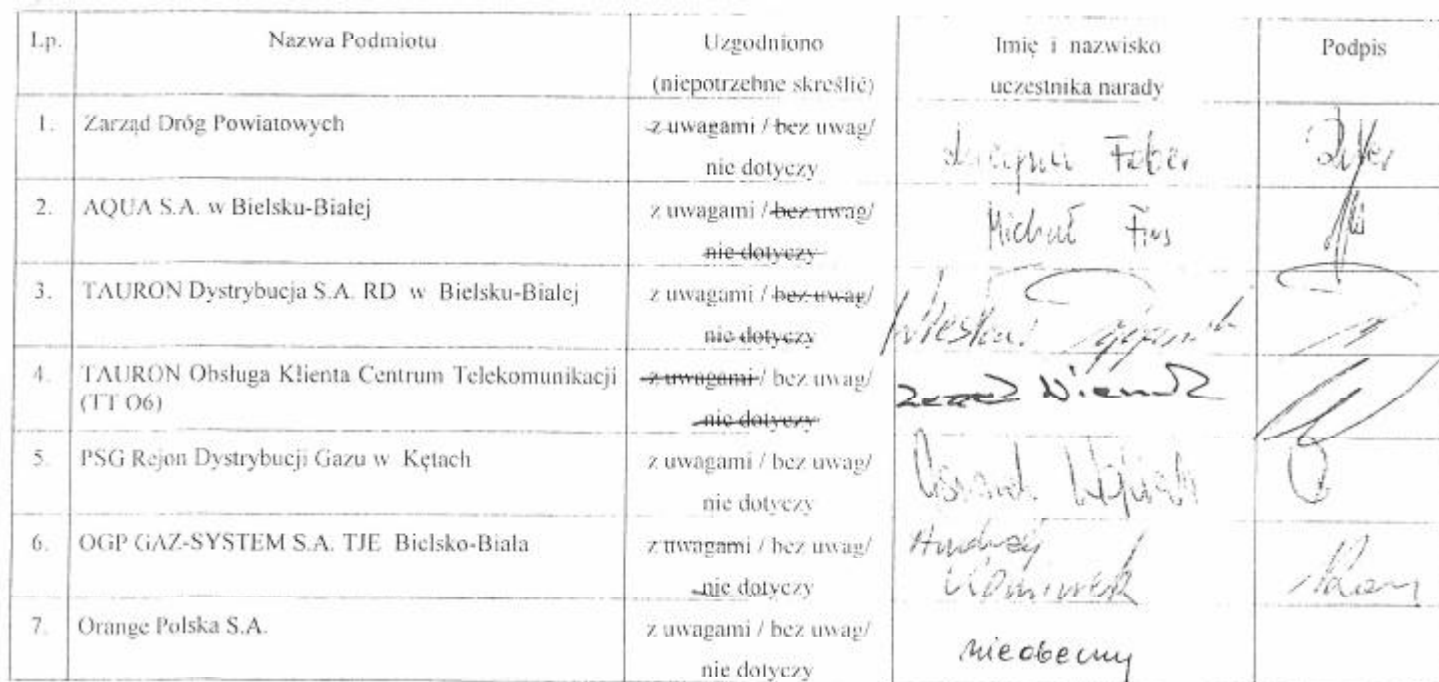 Lp. Nazwa Podmiotu Uzgodniono Imię i nazwisko Podpis
(niepotrzebne skreślić) uczestnika narady
1. Zarząd Dróg Powiatowych z uwagami / bez uwag/
nie dotyczy Faber
2. AQUA S.A. w Bielsku-Białej z uwagami / bez uwag/
nie dotyczy Michał
3. TAURON Dystrybucja S.A. RD w Bielsku-Białej z uwagami / bez uwag/
nie dotyczy
4. TAURON Obsługa Klienta Centrum Telekomunikacji z uwagami / bez uwag/
(TT O6) nie dotyczy
5. PSG Rejon Dystrybucji Gazu w Kętach z uwagami / bez uwag/
nie dotyczy
6. OGP GAZ-SYSTEM S.A. TJE Bielsko-Biała z uwagami / bez uwag/ Andrzej
nie dotyczy
7. Orange Polska S.A. z uwagami / bez uwag/
nie dotyczy nieobecny